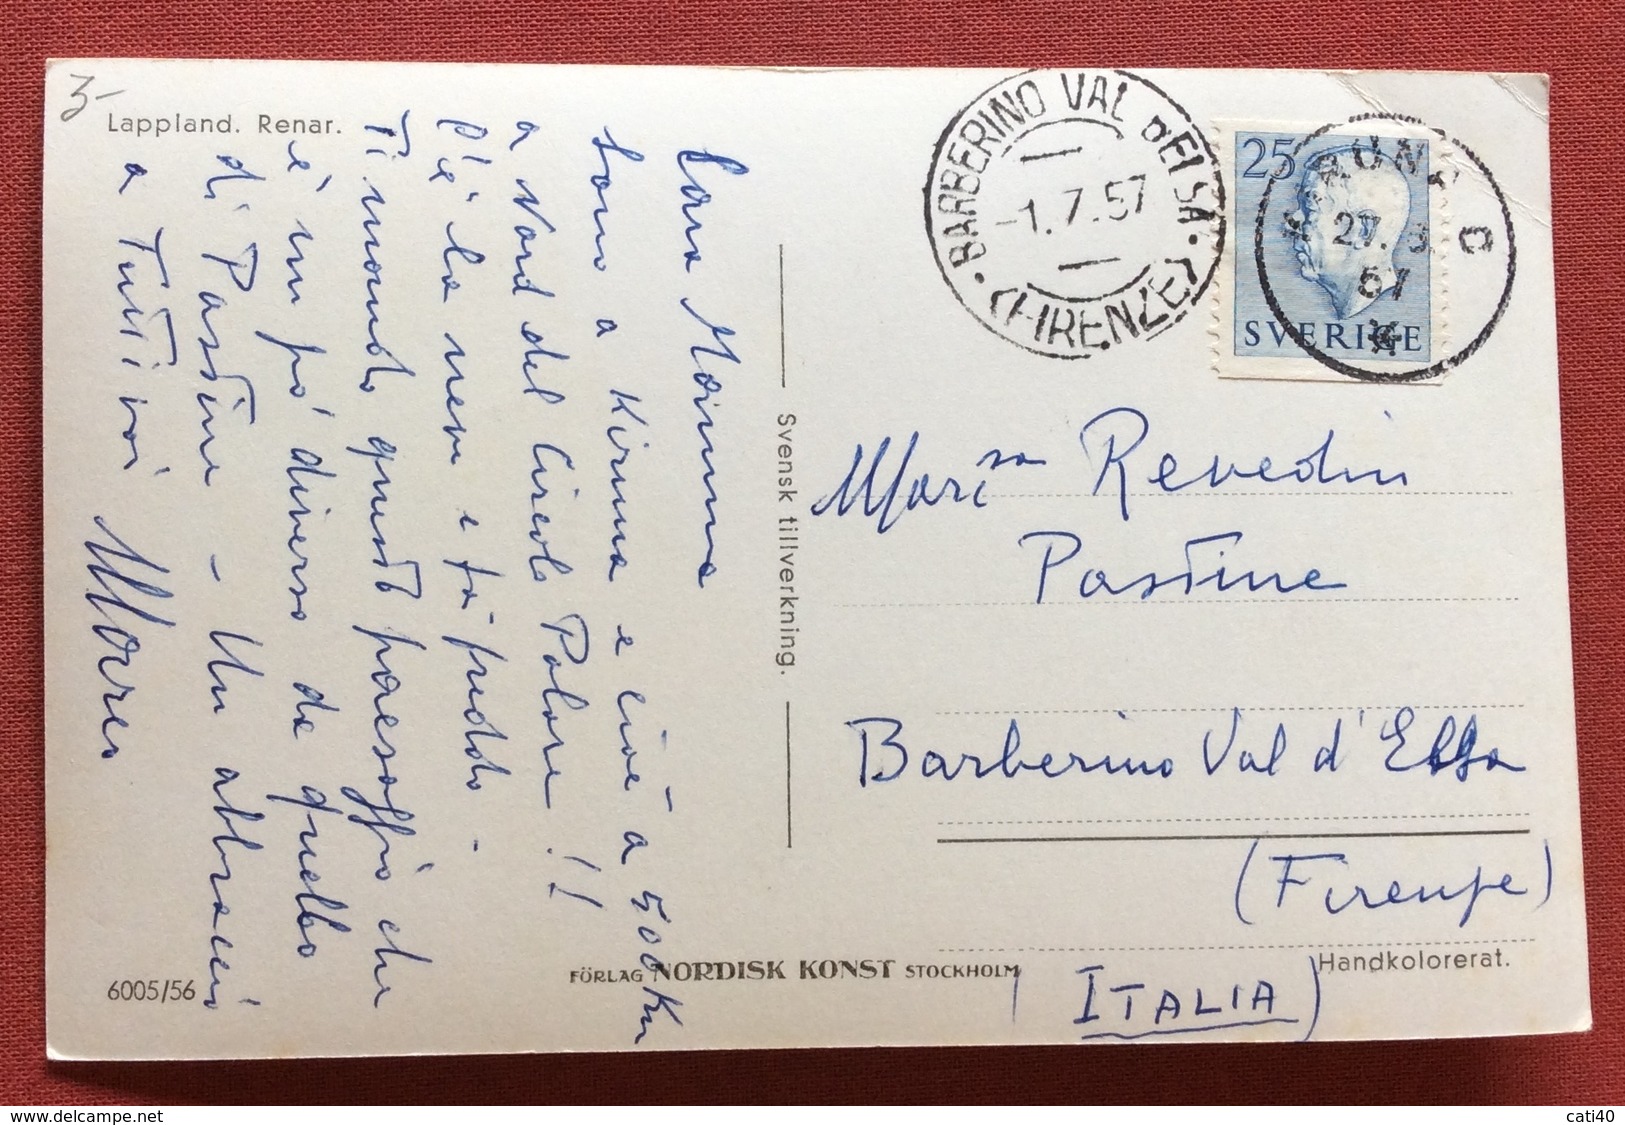 3-
Lappland. Renar.
Cara Mamma
Sono a Kiruna e cioè a 500 Km
a Nord del Circolo Polare !!
C'è la neve e fà freddo -
Ti mando questo paesaggio che
è un pó diverso da quello
di Pastine - Un abbraccio
a Tutti voi
6005/56
Svensk tillverkning.
FÖRLAG NORDISK KONST STOCKHOLM
BARBERINO VAL DELSA.
(FIRENZE)
-1.7.57
25
SVERIGE
KIRUNA C
27. 6.
57
Mar.sa Revedin
Pastine
Barberino Val d'Elsa
(Firenze)
(ITALIA)
Handkolorerat.
delcampe.net
cati40